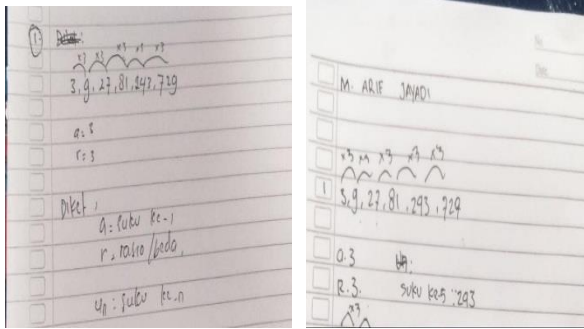 1.
Diket:
x3 x3 x3 x3 x3
3, 9, 27, 81, 243, 729
a = 3
r = 3
Diket,
a = suku ke-1
r = rasio/beda
Un = suku ke-n
No
Date
M. ARIF JAYADI
x3 x3 x3 x3 x3
1 3, 9, 27, 81, 293, 729
a. 3
R. 3. suku ke 5 : 293
x3